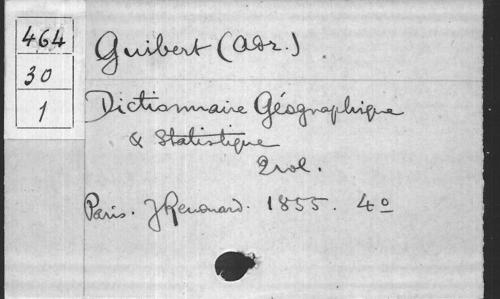 464
30
1
Guibert (Adr.)
Dictionnaire Géographique
& Statistique
2 vol.
Paris. J Renouard. 1855. 4º